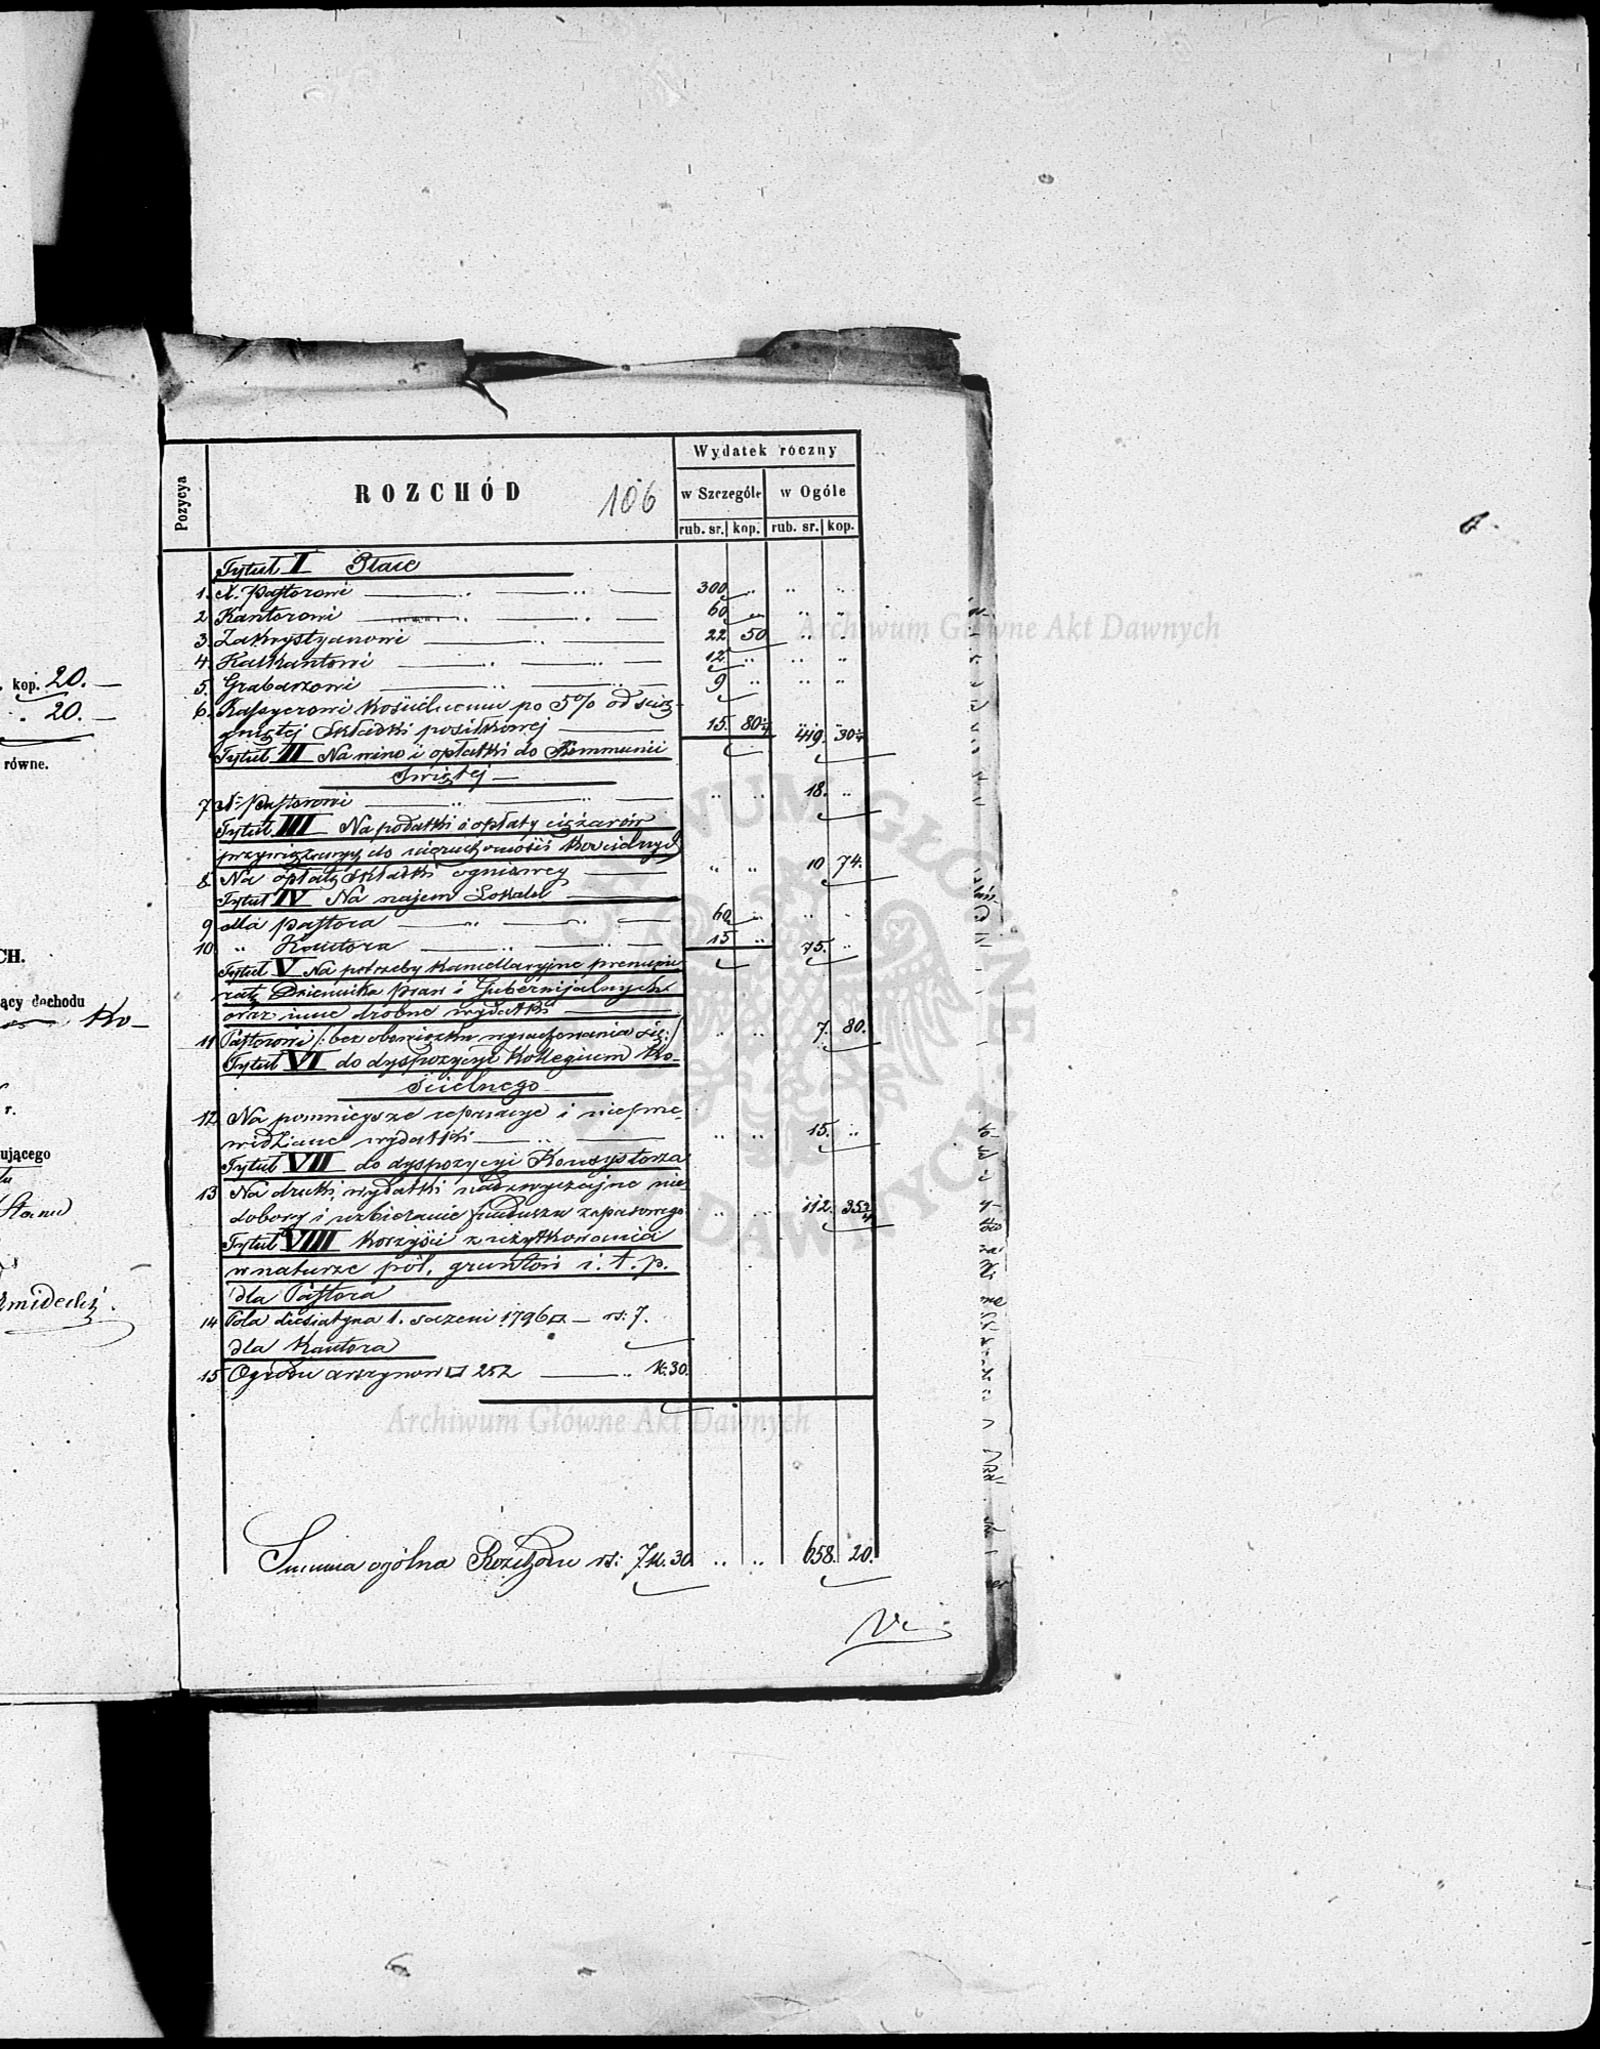 kop. 20. —
20. —
równe.
CH.
ący dochodu
Ko—
r.
ującego
Stanu
Pozycya
ROZCHÓD
106
Wydatek roczny
w Szczególe
w Ogóle
rub. sr. kop. rub. sr. kop.
Tytuł I Płace
1. X. Pastorowi 300 " " "
2. Kantorowi 60 " " "
3. Zakrystyanowi 22 50 " "
4. Kalkantowi 12 " " "
5. Grabarzowi 9 " " "
6. Kassyerowi Kościelnemu po 5% od ścią-
gniętej Składki posiłkowej 15. 80¼ 419. 30¼
Tytuł II Na wino i opłatki do Kommunii
Świętej —
7. X. Pastorowi " " 18. "
Tytuł III Na podatki i opłaty ciężarów
przywiązanych do nieruchomości Kościelnych
8. Na opłatę Składki ogniowej " " 10 74.
Tytuł IV Na najem Lokalu
9 dla Pastora 60 " " "
10. " Kantora 15 " 75. "
Tytuł V Na potrzeby Kancellaryjne prenume-
ratę Dziennika praw i Gubernijalnych
oraz inne drobne wydatki
11 Pastorowi /: bez obowiązku wyrachowania się :/ " " 7. 80.
Tytuł VI do dyspozycyi Kollegium Ko-
ścielnego
12. Na pomniejsze reparacye i nieprze-
widziane wydatki " " 15. "
Tytuł VII do dyspozycyi Konsystorza
13 Na druki, wydatki nadzwyczajne nie-
dobory i uzbieranie funduszu zapasowego " " 112. 35¾
Tytuł VIII Korzyści z użytkowania
w naturze pól, gruntów i. t. p.
dla Pastora
14 Pola diesiatyna 1. sazeni 1796 □ — rs: 7.
dla Kantora
15 Ogrodu arszynow □ 252 k: 30.
Summa ogólna Rozchodu rs: 7 k. 30 " " 658. 20.
Archiwum Główne Akt Dawnych
Archiwum Główne Akt Dawnych